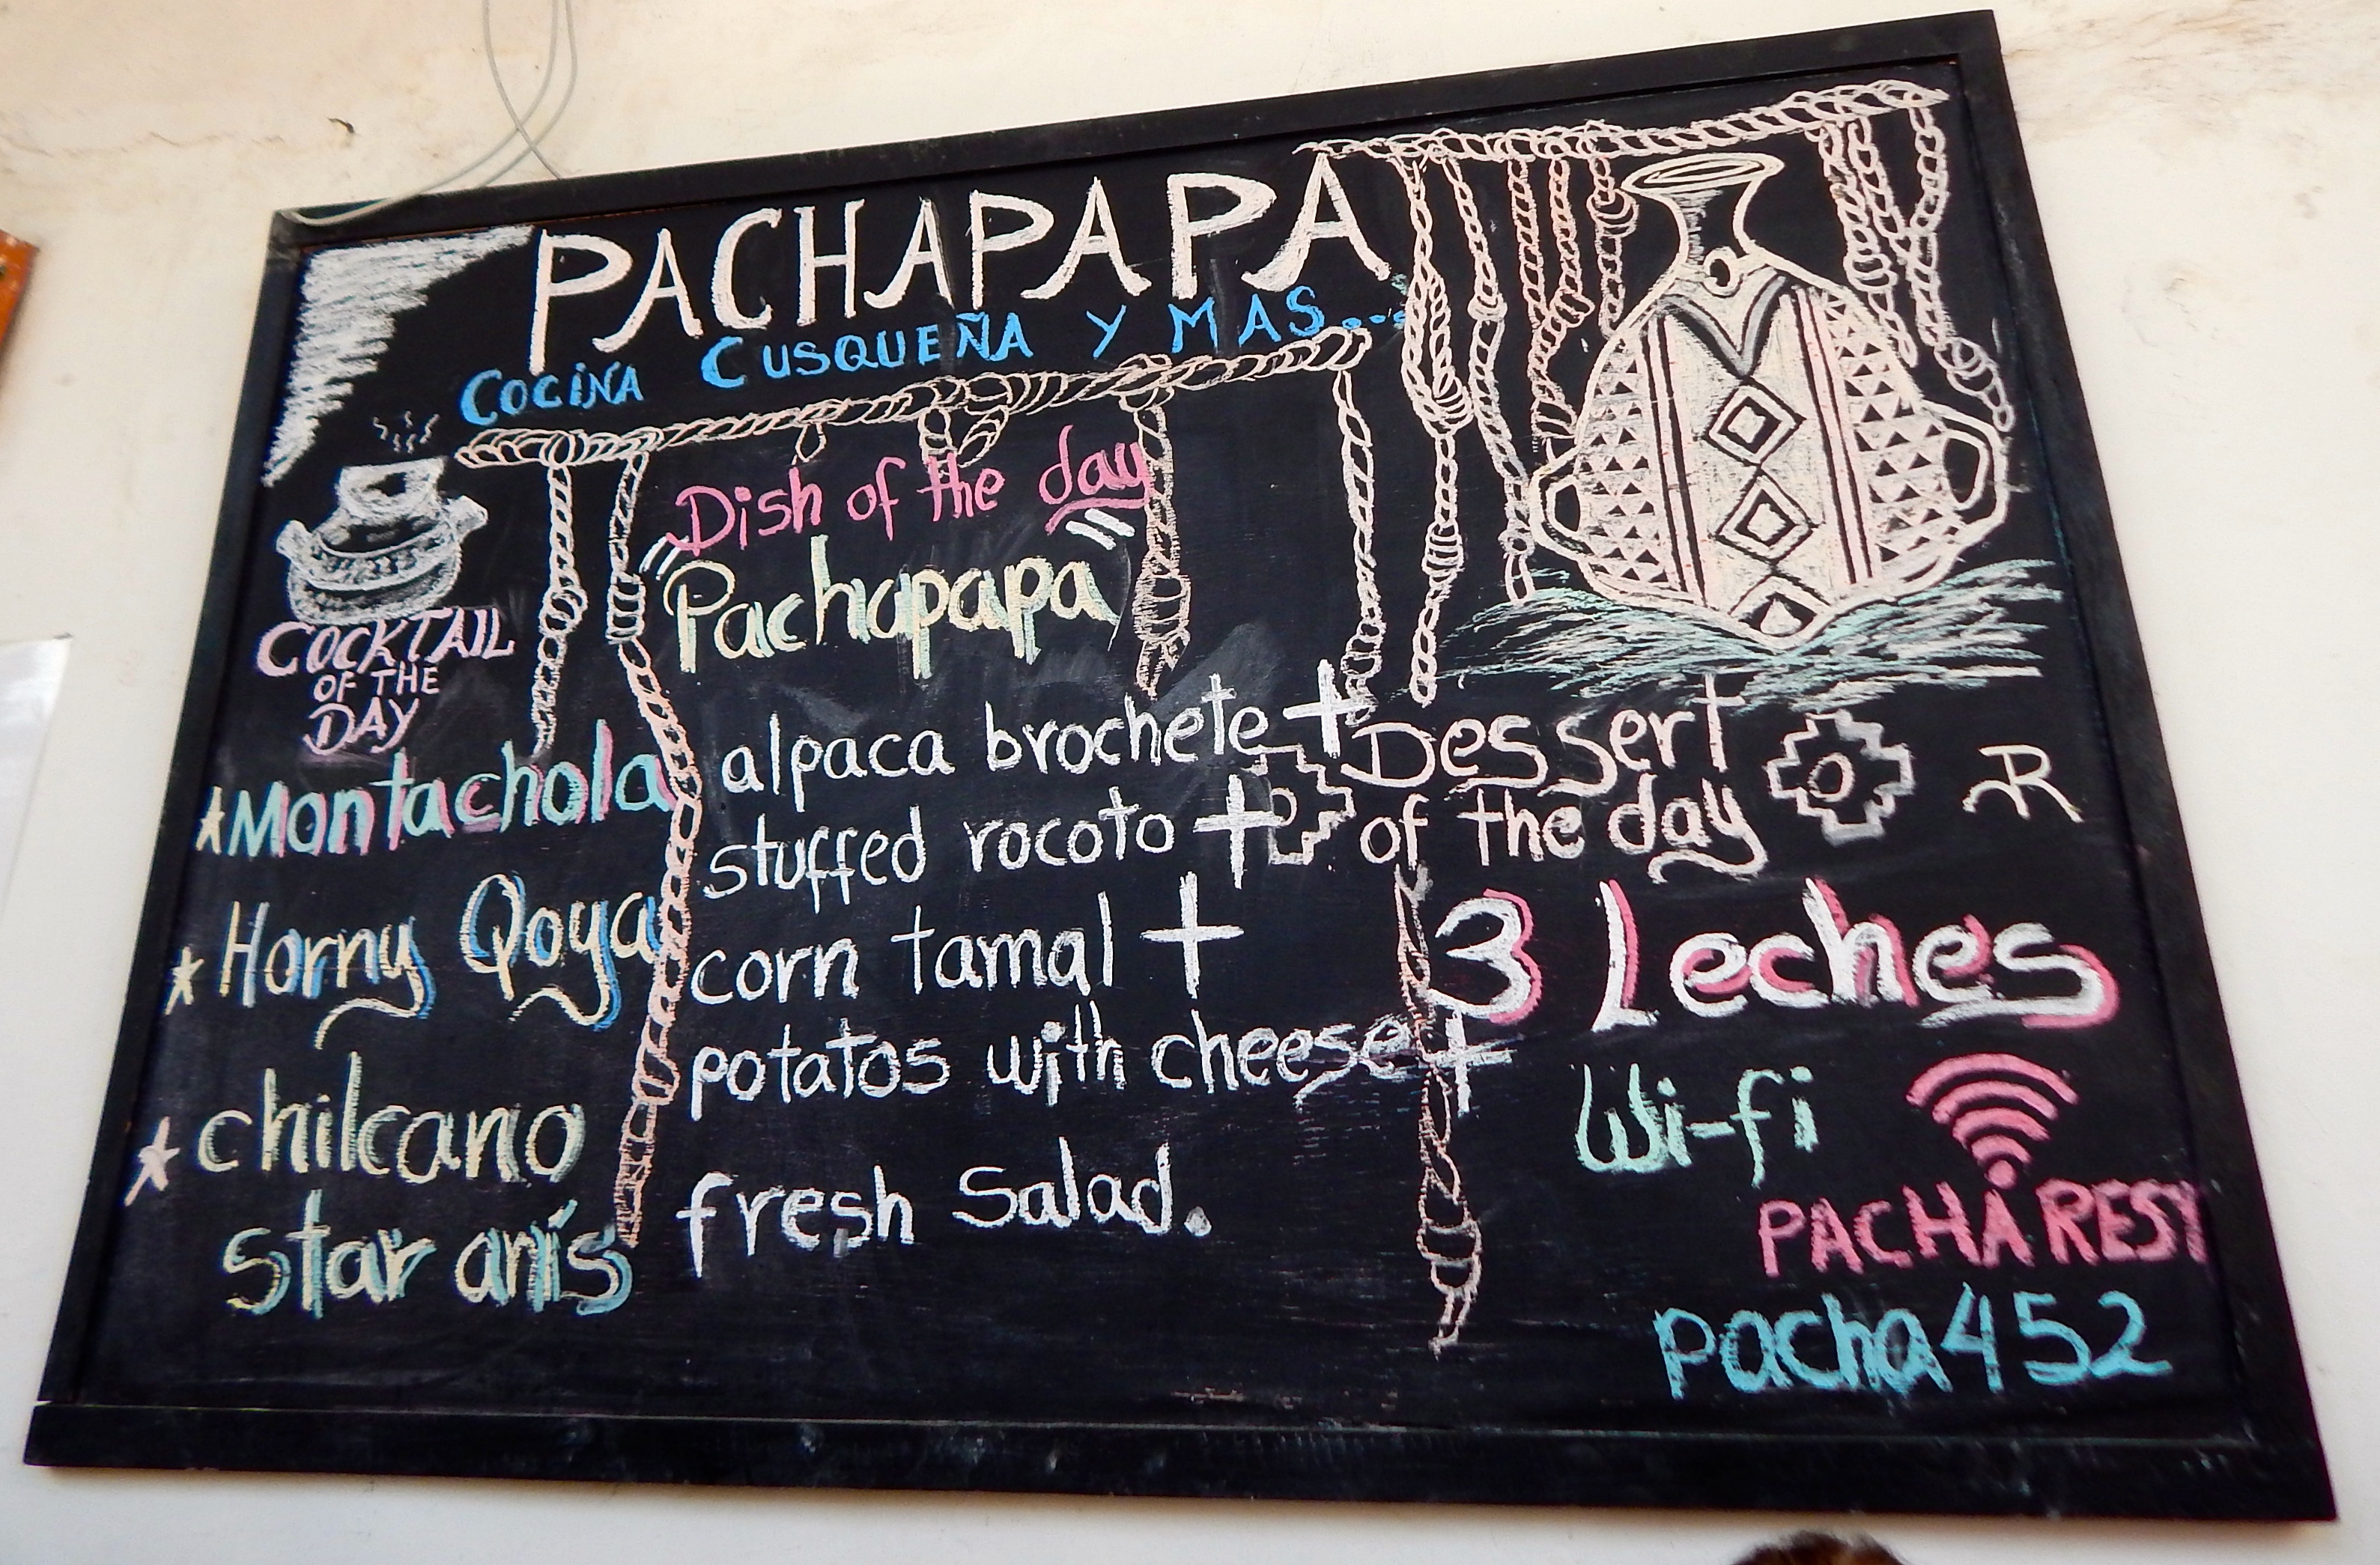 PACHAPAPA
COCINA CUSQUEÑA Y MAS...
COCKTAIL
OF THE
DAY
*Montachola
*Horny Qoya
*chilcano
star anís
Dish of the day
"Pachapapa"
alpaca brochete +
stuffed rocoto +
corn tamal +
potatos with cheese +
fresh Salad.
Dessert
of the day
R
3 Leches
Wi-fi
PACHAREST
pacha452